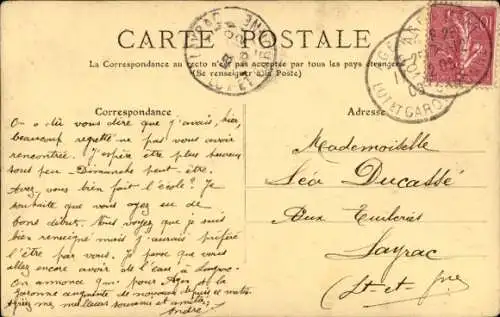 CARTE POSTALE
La Correspondance au recto n'est pas acceptée par tous les pays étrangers
(Se renseigner à la Poste)
Correspondance
Adresse
On a dû vous dire que j'avais, hier,
beaucoup regretté ne pas vous avoir
rencontrée. J'espère être plus heureux
sous peu. Dimanche peut-être.
Avez vous bien fait l'école? Je
souhaite que vous ayez eu de
bons début. Vous voyez que je suis
bien renseigné mais j'aurais préféré
l'être par vous. Je pense que vous
allez encore avoir de l'eau à
On annonce que pour Agen la
Garonne augmente de nouveau depuis ce matin.
mes meilleurs souvenirs et amitiés
André
Mademoiselle
Léa Ducassé
Aux Tuileries
Layrac
Lt-et-Gne
LAYRAC
LOT ET GARONNE